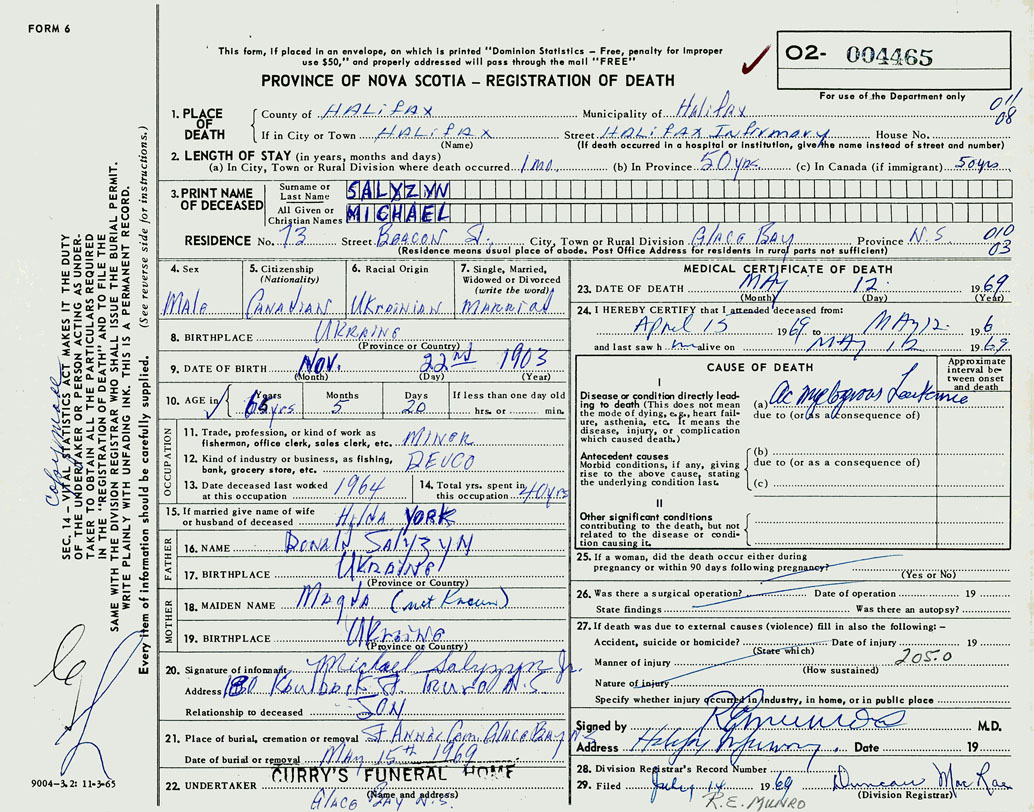 FORM 6
This form, if placed in an envelope, on which is printed "Dominion Statistics – Free, penalty for improper
use $50," and properly addressed will pass through the mail "FREE"
PROVINCE OF NOVA SCOTIA – REGISTRATION OF DEATH
02- 004465
For use of the Department only
011
08
1. PLACE OF DEATH County of HALIFAX Municipality of Halifax
If in City or Town HALIFAX Street HALIFAX Infirmary House No.
(Name) (If death occurred in a hospital or institution, give the name instead of street and number)
2. LENGTH OF STAY (in years, months and days)
(a) In City, Town or Rural Division where death occurred 1 mo. (b) In Province 50 yrs. (c) In Canada (if immigrant) 50 yrs
3. PRINT NAME OF DECEASED Surname or Last Name SALYZYN
All Given or Christian Names MICHAEL
RESIDENCE No. 73 Street BEACON St. City, Town or Rural Division GLACE BAY Province N.S 010
(Residence means usual place of abode. Post Office Address for residents in rural parts not sufficient) 03
4. Sex Male
5. Citizenship (Nationality) CANADIAN
6. Racial Origin UKRAINIAN
7. Single, Married, Widowed or Divorced (write the word) MARRIED
8. BIRTHPLACE UKRAINE
(Province or Country)
9. DATE OF BIRTH NOV. 22nd 1903
(Month) (Day) (Year)
10. AGE in Years 65 yrs Months 5 Days 20 If less than one day old hrs. or min.
OCCUPATION
11. Trade, profession, or kind of work as fisherman, office clerk, sales clerk, etc. MINER
12. Kind of industry or business, as fishing, bank, grocery store, etc. DEVCO
13. Date deceased last worked at this occupation 1964
14. Total yrs. spent in this occupation 40 yrs
15. If married give name of wife or husband of deceased HELNA YORK
FATHER
16. NAME DONALD SALYZYN
17. BIRTHPLACE UKRAINE
(Province or Country)
MOTHER
18. MAIDEN NAME MAGDA (not Known)
19. BIRTHPLACE UKRAINE
(Province or Country)
20. Signature of informant Michael Salyzyn Jr.
Address 180 St. Truro N.S
Relationship to deceased SON
21. Place of burial, cremation or removal St Annes Cem. Glace Bay NS
Date of burial or removal MAY 15th 1969
22. UNDERTAKER CURRY'S FUNERAL HOME
(Name and address)
GLACE BAY N.S.
MEDICAL CERTIFICATE OF DEATH
23. DATE OF DEATH MAY 12 1969
(Month) (Day) (Year)
24. I HEREBY CERTIFY that I attended deceased from:
April 15 1969 to MAY 12 196
and last saw h im alive on MAY 12 1969
CAUSE OF DEATH
Approximate interval between onset and death
I
Disease or condition directly leading to death (This does not mean the mode of dying, e.g., heart failure, asthenia, etc. It means the disease, injury, or complication which caused death.)
(a) Ac myelogenous Leukemia
due to (or as a consequence of)
Antecedent causes
Morbid conditions, if any, giving rise to the above cause, stating the underlying condition last.
(b)
due to (or as a consequence of)
(c)
II
Other significant conditions
contributing to the death, but not related to the disease or condition causing it.
25. If a woman, did the death occur either during
pregnancy or within 90 days following pregnancy?
(Yes or No)
26. Was there a surgical operation? Date of operation 19
State findings Was there an autopsy?
27. If death was due to external causes (violence) fill in also the following: –
Accident, suicide or homicide? Date of injury 19
(State which)
Manner of injury 205.0
(How sustained)
Nature of injury
Specify whether injury occurred in industry, in home, or in public place
Signed by M.D.
Address Halifax Infirmary. Date 19
28. Division Registrar's Record Number
29. Filed July 14 1969 Duncan MacRae
(Division Registrar)
R.E. MUNRO
SEC. 14 – VITAL STATISTICS ACT MAKES IT THE DUTY
OF THE UNDERTAKER OR PERSON ACTING AS UNDER-
TAKER TO OBTAIN ALL THE PARTICULARS REQUIRED
IN THE "REGISTRATION OF DEATH" AND TO FILE THE
SAME WITH THE DIVISION REGISTRAR WHO SHALL ISSUE THE BURIAL PERMIT.
WRITE PLAINLY WITH UNFADING INK. THIS IS A PERMANENT RECORD.
Every item of information should be carefully supplied. (See reverse side for instructions.)
9004-3.2: 11-3-65